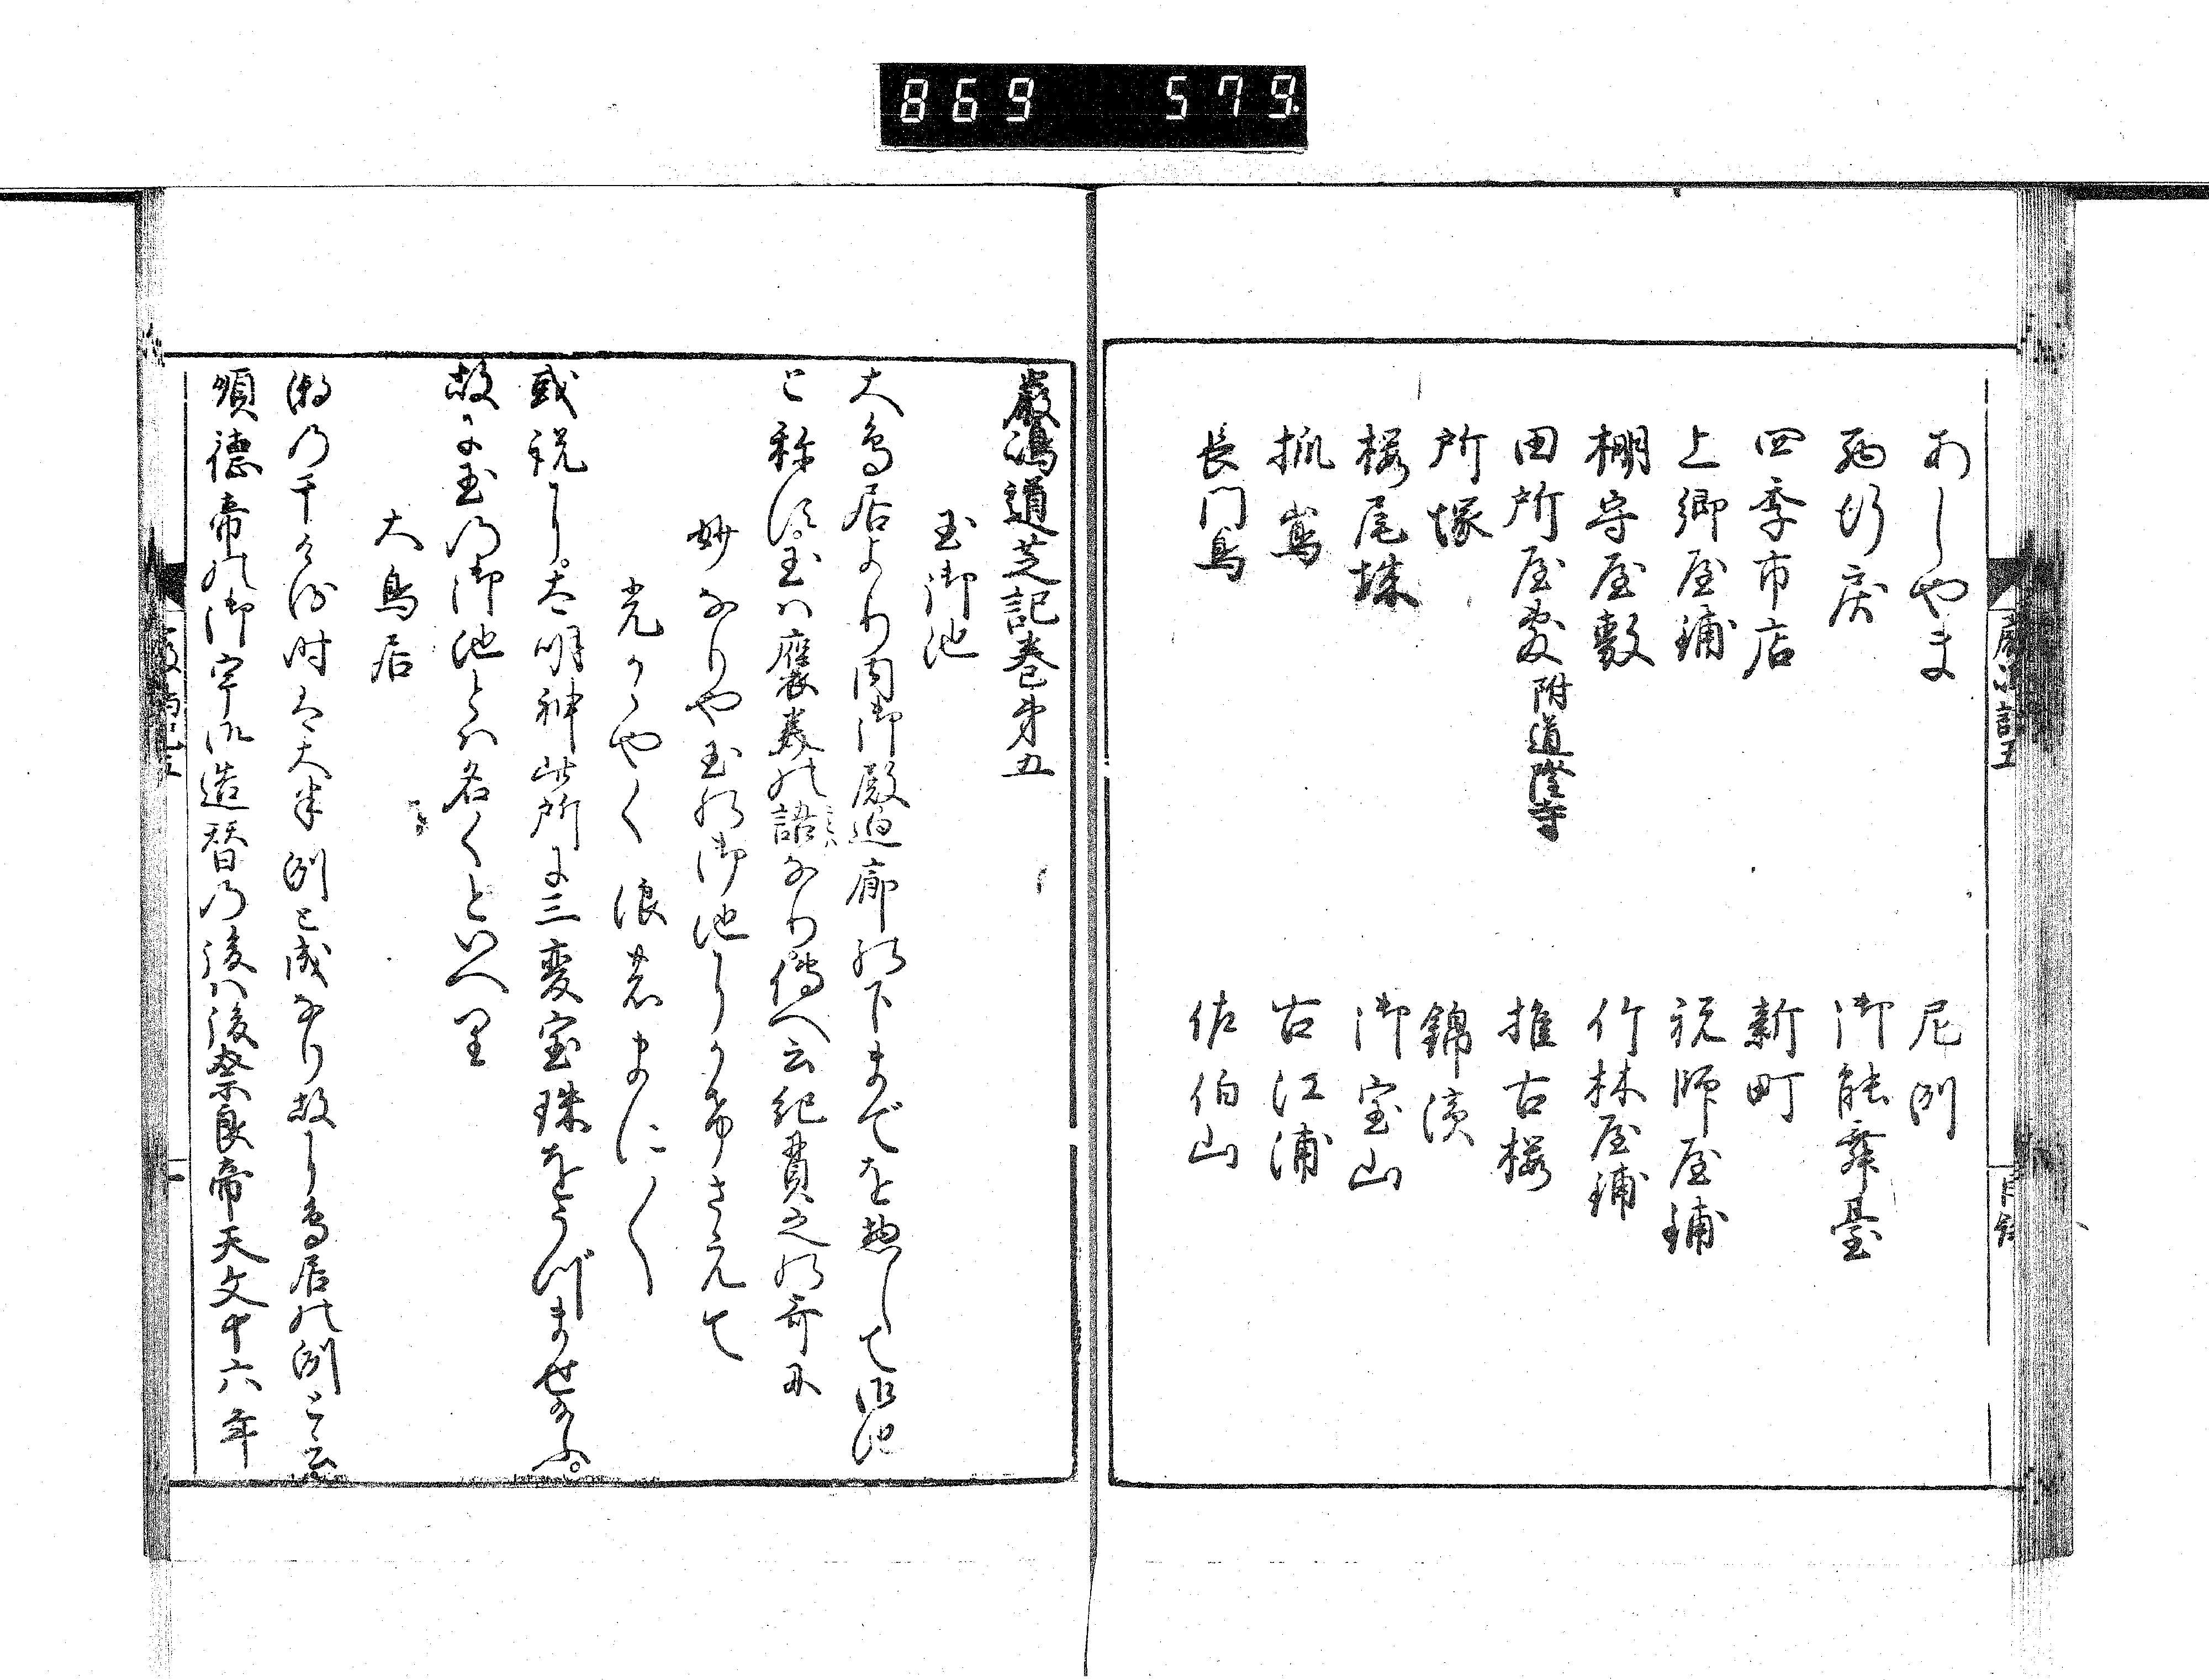 869 579
あしやま
尼別
御能舞臺
四季市店
新町
上卿屋鋪
祝師屋鋪
棚守屋敷
竹林屋鋪
田所屋敷附道隆寺
推古桜
所塚
錦濱
桜尾城
御宝山
狐嶌
古江浦
長門島
佐伯山
嚴嶋道芝記巻第五
玉御池
大鳥居より内御殿廻廊の下までを惣して御池
と称す。玉ハ褒美の語なり。傳へ云紀貫之の哥に
妙なりや玉の御池にうかふさえて
光かゝやく浪のまに〱
或説に。大明神此所に三変宝珠をうづませ給ふ。
故に玉の御池とハ名くといへり
大鳥居
潮の干る時ハ大半別と成なり故に鳥居の別と云。
順徳帝の御宇御造替の後ハ後奈良帝天文十六年